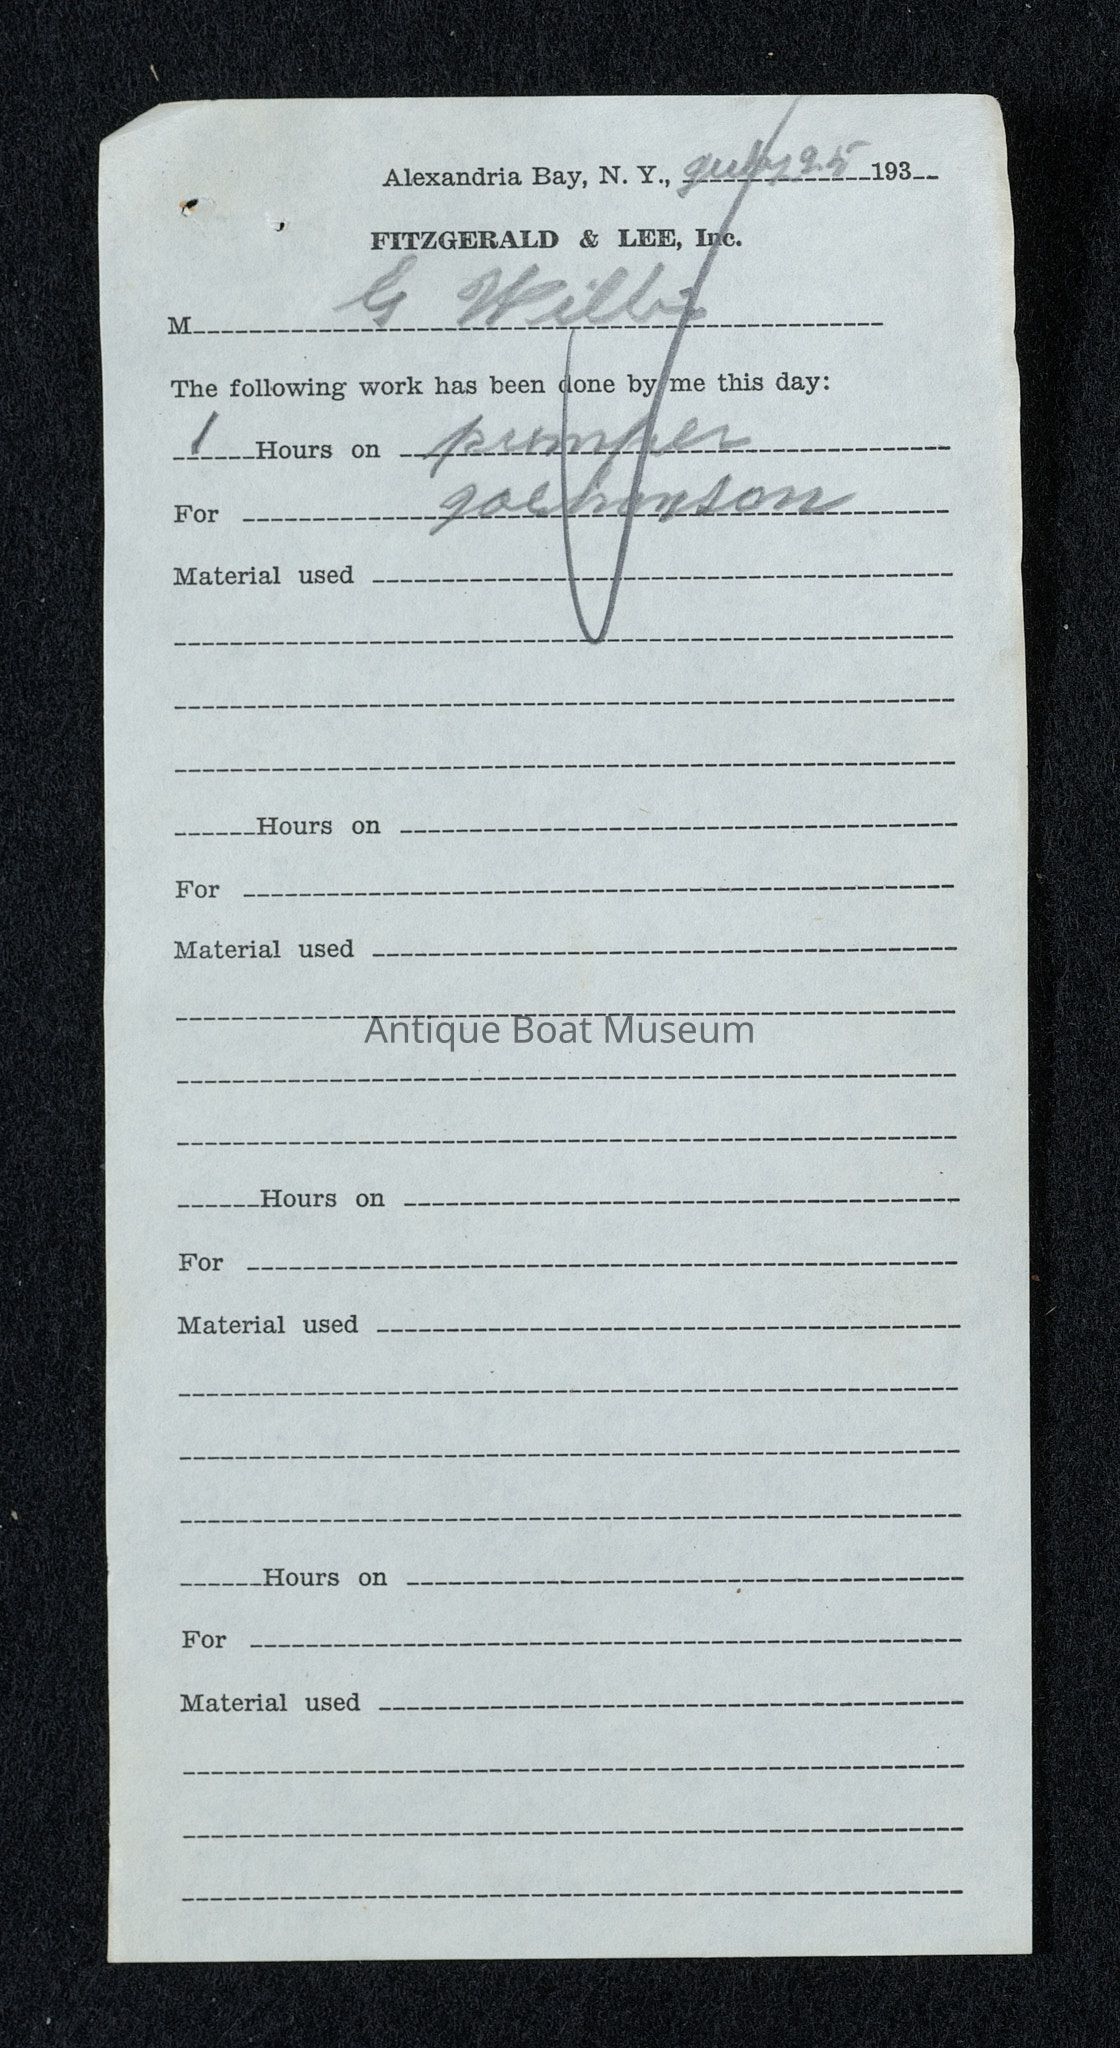 Alexandria Bay, N. Y., July 25 193
FITZGERALD & LEE, Inc.
M G
The following work has been done by me this day:
1 Hours on pumper
For
Material used
Hours on
For
Material used
Antique Boat Museum
Hours on
For
Material used
Hours on
For
Material used